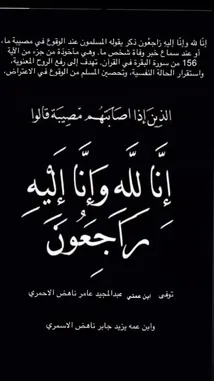 إنا لله وإنا إليه راجعون ذكر يقوله المسلمون عند الوقوع في مصيبة ما،
أو عند سماع خبر وفاة شخص ما. وهي مأخوذة من جزء من الآية
156 من سورة البقرة في القرآن. تهدف إلى رفع الروح المعنوية،
واستقرار الحالة النفسية، وتحصين المسلم من الوقوع في الاعتراض.
الذين إذا اصابتهم مصيبة قالوا
إِنَّا لِلَّهِ وَإِنَّا إِلَيْهِ
رَاجِعُونَ
توفى ابن عمتي عبدالمجيد عامر ناهض الاحمري
وابن عمه يزيد جابر ناهض الاسمري